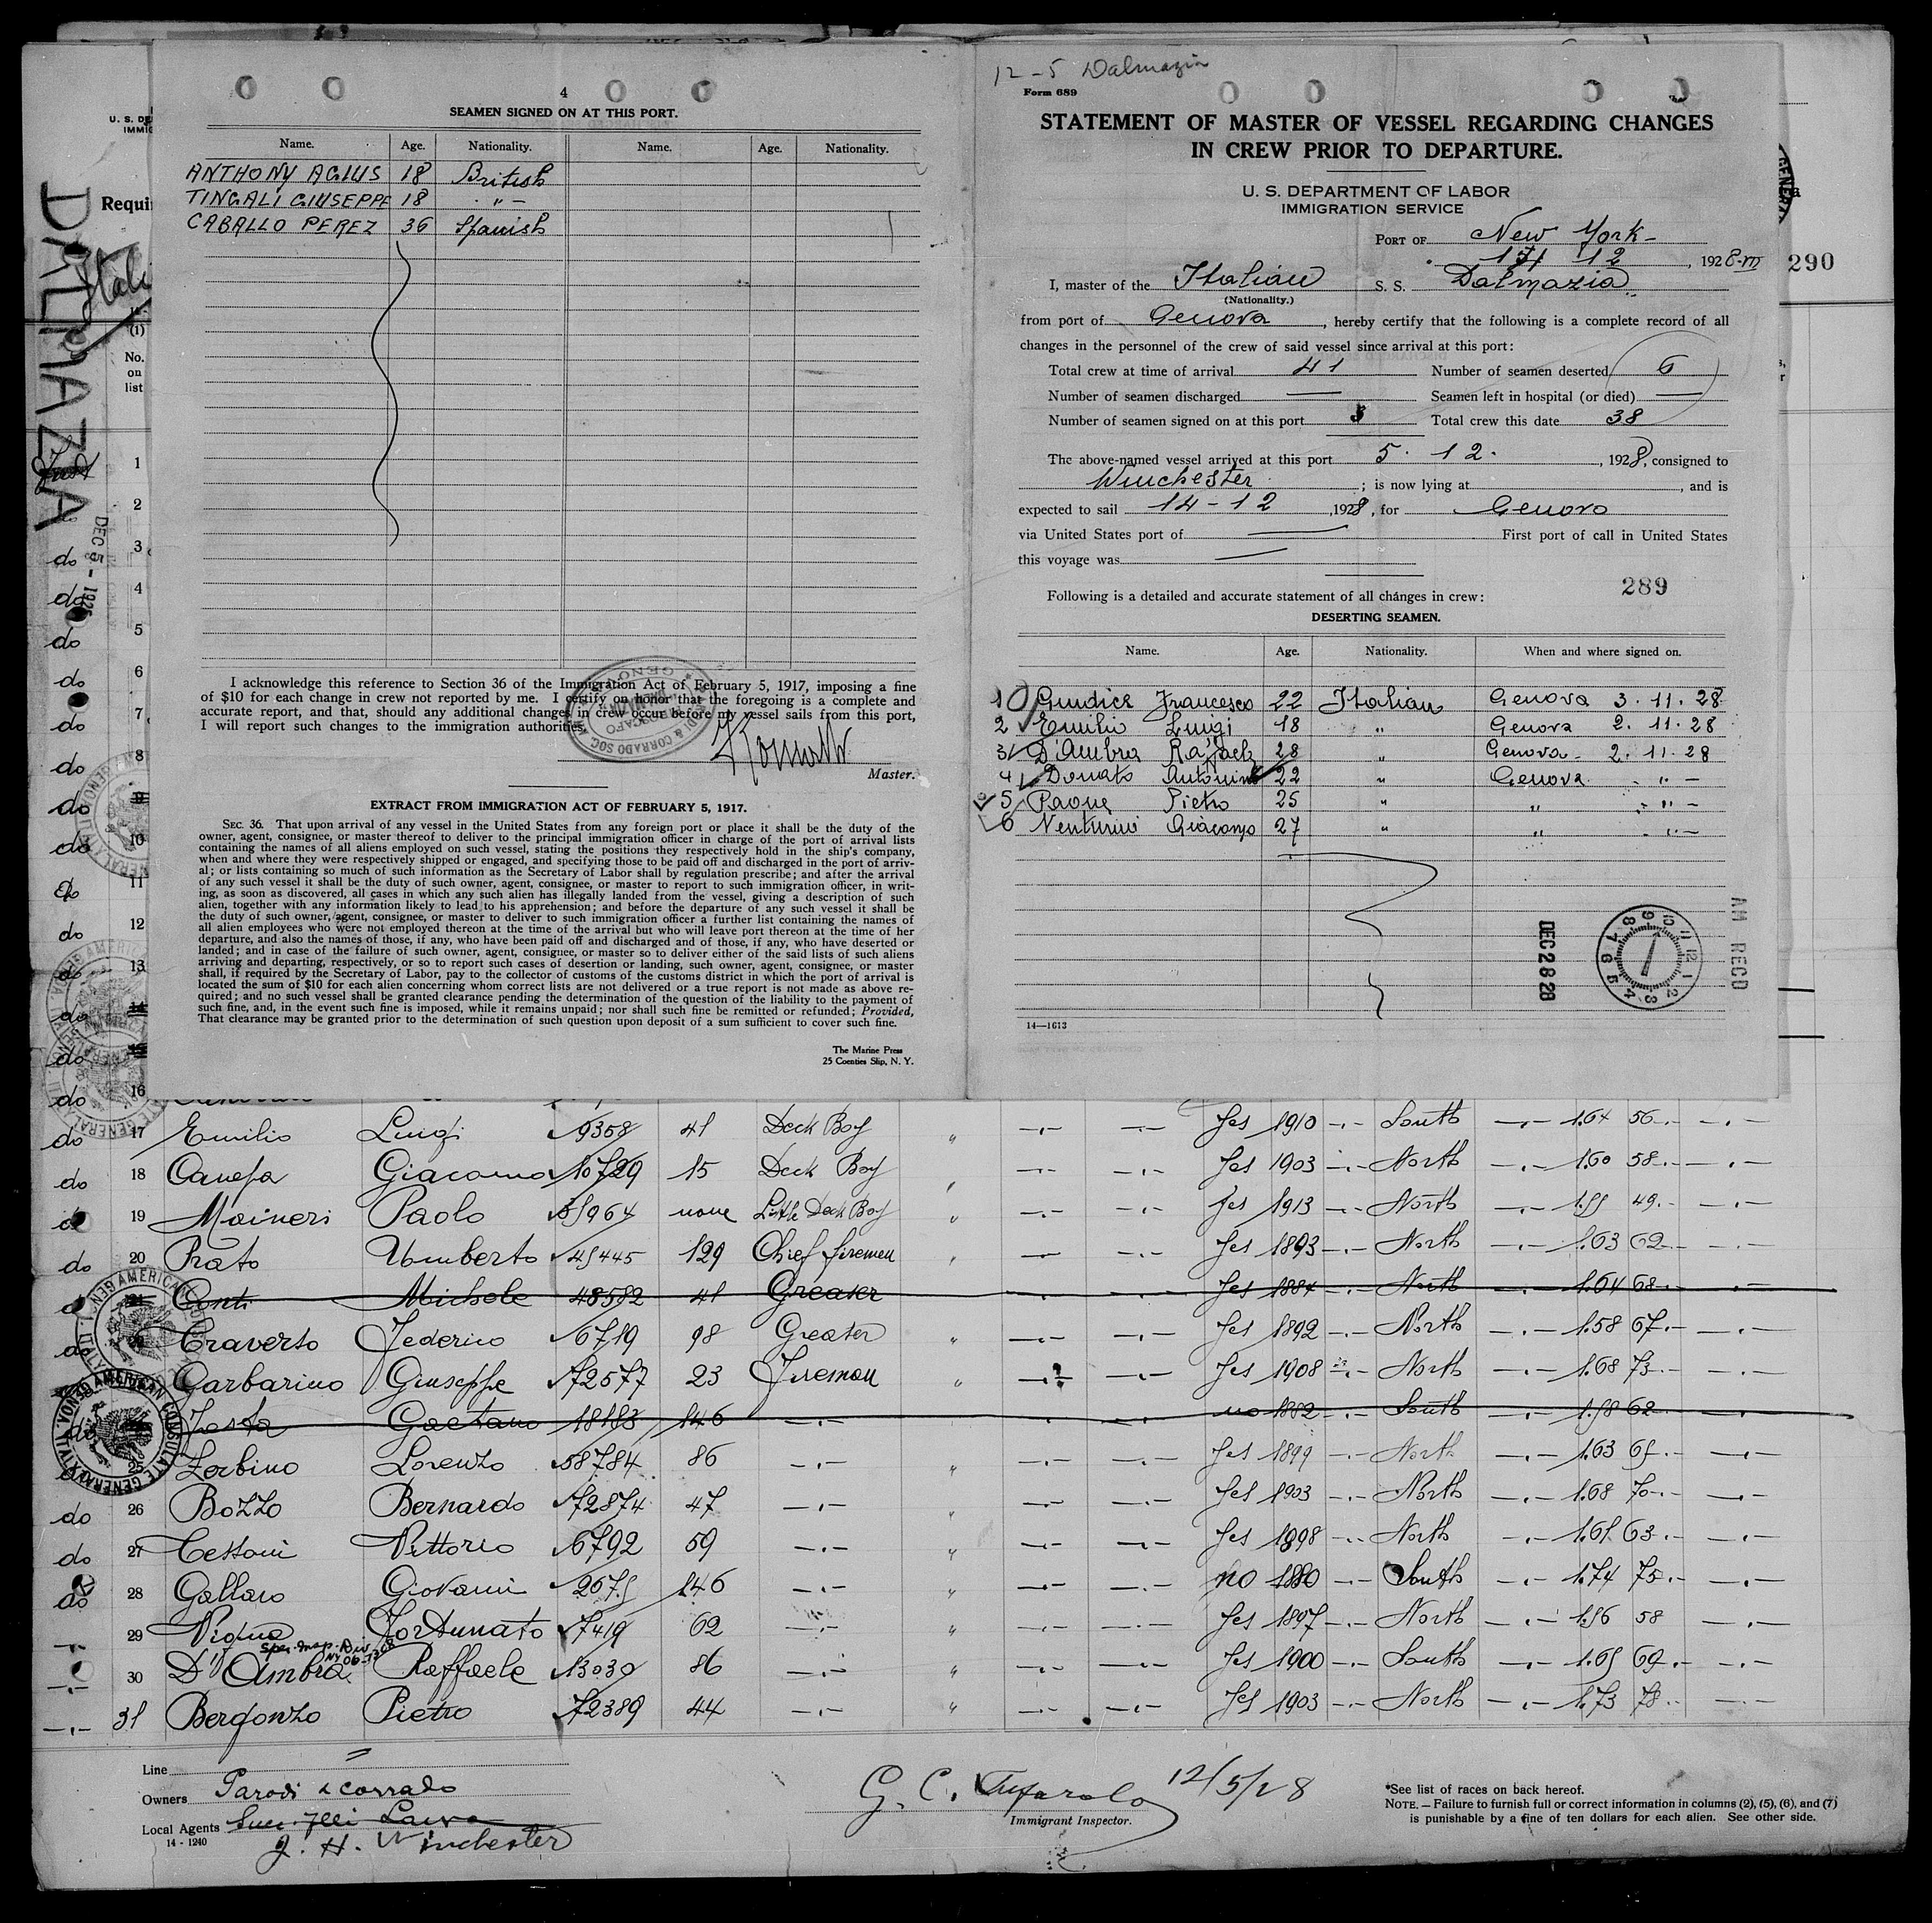 4
SEAMEN SIGNED ON AT THIS PORT.
Name. Age. Nationality. Name. Age. Nationality.
ANTHONY AGIUS 18 British
TINGALI GIUSEPPE 18 - " -
CABALLO PEREZ 36 Spanish
I acknowledge this reference to Section 36 of the Immigration Act of February 5, 1917, imposing a fine
of $10 for each change in crew not reported by me. I certify on honor that the foregoing is a complete and
accurate report, and that, should any additional changes in crew occur before my vessel sails from this port,
I will report such changes to the immigration authorities.
Master.
EXTRACT FROM IMMIGRATION ACT OF FEBRUARY 5, 1917.
SEC. 36. That upon arrival of any vessel in the United States from any foreign port or place it shall be the duty of the
owner, agent, consignee, or master thereof to deliver to the principal immigration officer in charge of the port of arrival lists
containing the names of all aliens employed on such vessel, stating the positions they respectively hold in the ship's company,
when and where they were respectively shipped or engaged, and specifying those to be paid off and discharged in the port of arriv-
al; or lists containing so much of such information as the Secretary of Labor shall by regulation prescribe; and after the arrival
of any such vessel it shall be the duty of such owner, agent, consignee, or master to report to such immigration officer, in writ-
ing, as soon as discovered, all cases in which any such alien has illegally landed from the vessel, giving a description of such
alien, together with any information likely to lead to his apprehension; and before the departure of any such vessel it shall be
the duty of such owner, agent, consignee, or master to deliver to such immigration officer a further list containing the names of
all alien employees who were not employed thereon at the time of the arrival but who will leave port thereon at the time of her
departure, and also the names of those, if any, who have been paid off and discharged and of those, if any, who have deserted or
landed; and in case of the failure of such owner, agent, consignee, or master so to deliver either of the said lists of such aliens
arriving and departing, respectively, or so to report such cases of desertion or landing, such owner, agent, consignee, or master
shall, if required by the Secretary of Labor, pay to the collector of customs of the customs district in which the port of arrival is
located the sum of $10 for each alien concerning whom correct lists are not delivered or a true report is not made as above re-
quired; and no such vessel shall be granted clearance pending the determination of the question of the liability to the payment of
such fine, and, in the event such fine is imposed, while it remains unpaid; nor shall such fine be remitted or refunded; Provided,
That clearance may be granted prior to the determination of such question upon deposit of a sum sufficient to cover such fine.
The Marine Press
25 Coenties Slip, N. Y.
12-5 Dalmazia
Form 689
STATEMENT OF MASTER OF VESSEL REGARDING CHANGES
IN CREW PRIOR TO DEPARTURE.
U. S. DEPARTMENT OF LABOR
IMMIGRATION SERVICE
PORT OF New York -
12, 1928
290
I, master of the Italian S. S. Dalmazia
(Nationality.)
from port of Genova, hereby certify that the following is a complete record of all
changes in the personnel of the crew of said vessel since arrival at this port:
Total crew at time of arrival 41 Number of seamen deserted 6
Number of seamen discharged — Seamen left in hospital (or died) —
Number of seamen signed on at this port 3 Total crew this date 38
The above-named vessel arrived at this port 5. 12., 1928, consigned to
Winchester; is now lying at , and is
expected to sail 14-12, 1928, for Genova
via United States port of — First port of call in United States
this voyage was —
289
Following is a detailed and accurate statement of all changes in crew:
DESERTING SEAMEN.
Name. Age. Nationality. When and where signed on.
1 Giudice Francesco 22 Italian Genova 3.11.28
2 Emilio Luigi 18 " Genova 2.11.28
3 D'Ambra Rafaele 28 " Genova 2.11.28
4 Donato Antonino 22 " Genova - " -
5 Paone Pietro 25 " " - " -
6 Venturini Giacomo 27 " " - " -
DEC 28 28
AM RECD
14—1613
DALMAZIA
DEC 5 -
Requi
(1)
No.
on
list
17 Emilio Luigi 9358 41 Deck Boy " Yes 1910 South 1.64 56
18 Canepa Giacomo 10729 15 Deck Boy " Yes 1903 North 1.60 58
19 Maineri Paolo none Little Deck Boy " Yes 1913 North 1.55 49
20 Prato Umberto 45445 129 Chief firemen " Yes 1893 North 1.63 62
Conti Michele 48582 41 Greaser Yes 1884 North 1.64 68
Traverso Federico 6719 98 Greaser " Yes 1892 North 1.58 67
Garbarino Giuseppe 72577 23 Firemen " Yes 1908 North 1.68 73
Gaetano 18183 146 no 1882 South 1.58 62
25 Zerbino Lorenzo 58784 86 " Yes 1899 North 1.63 65
26 Bozzo Bernardo 72874 47 " Yes 1903 North 1.68 70
27 Tessoni Vittorio 6792 59 " Yes 1898 North 1.61 63
28 Gallaro Giovanni 2675 146 " no 1880 South 1.74 75
29 Vigna Fortunato 7419 62 " Yes 1897 North 1.56 58
30 D'Ambra Raffaele 13039 86 " Yes 1900 South 1.65 69
31 Bergonzo Pietro 72389 44 " Yes 1903 North 1.73 78
Line
Owners Parodi & Corrado
Local Agents
14 - 1240
J. H. Winchester
G. C. 12/5/28
Immigrant Inspector.
*See list of races on back hereof.
NOTE. — Failure to furnish full or correct information in columns (2), (5), (6), and (7)
is punishable by a fine of ten dollars for each alien. See other side.